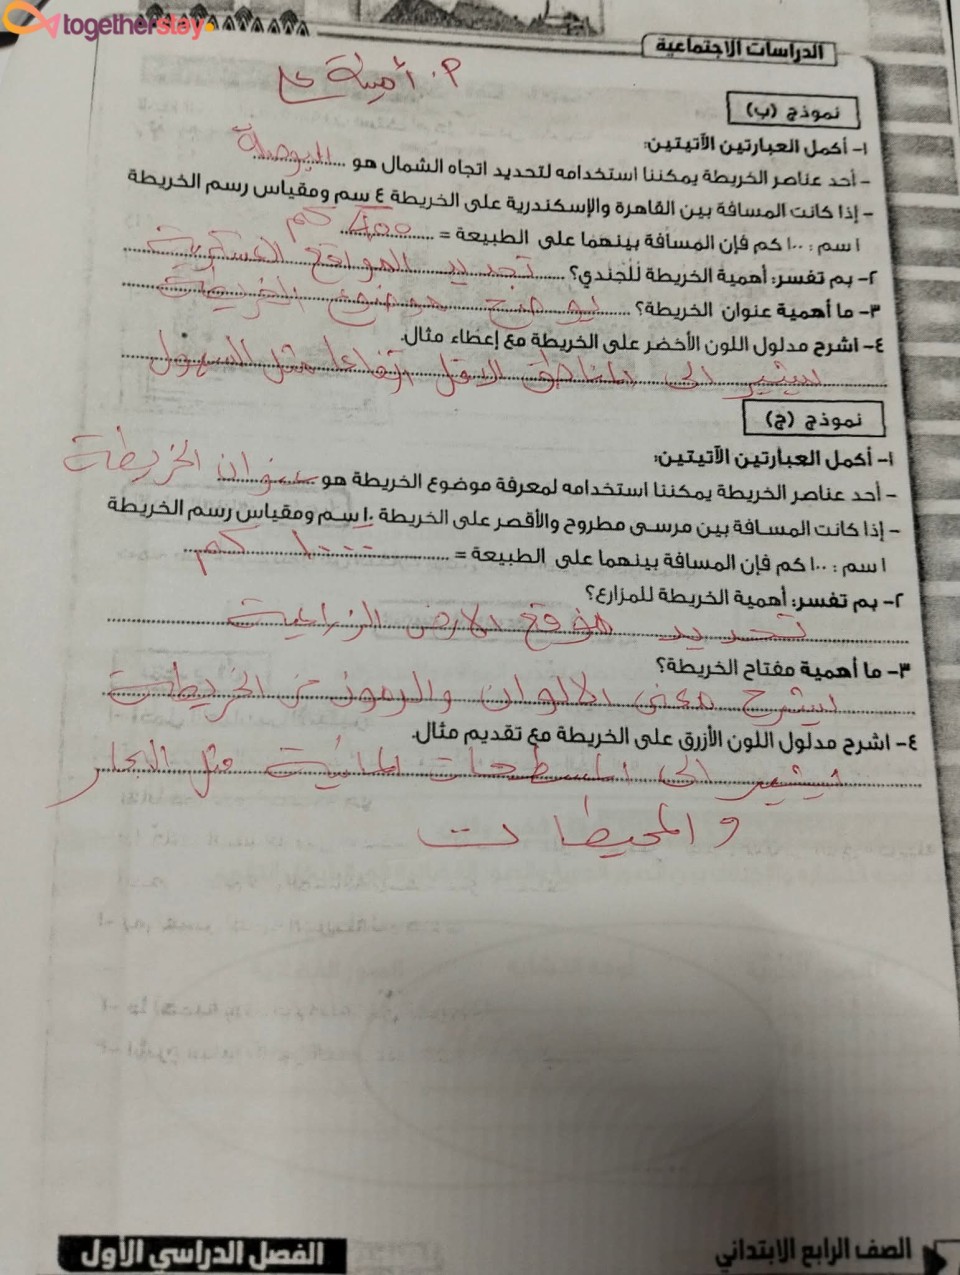 togetherstay.
الدراسات الاجتماعية
م. أمينة ع
نموذج (ب)
١- أكمل العبارتين الآتيتين:
- أحد عناصر الخريطة يمكننا استخدامه لتحديد اتجاه الشمال هو ....... البوصلة
- إذا كانت المسافة بين القاهرة والإسكندرية على الخريطة ٤ سم ومقياس رسم الخريطة
١ سم : ١٠٠ كم فإن المسافة بينهما على الطبيعة = ....... 400 كم
٢- بم تفسر: أهمية الخريطة للجندي؟ ....... تحديد المواقع العسكرية
٣- ما أهمية عنوان الخريطة؟ ....... يوضح موضوع الخريطة
٤- اشرح مدلول اللون الأخضر على الخريطة مع إعطاء مثال.
يشير الى المناطق الاقل ارتفاعا مثل السهول
نموذج (ج)
١- أكمل العبارتين الآتيتين:
- أحد عناصر الخريطة يمكننا استخدامه لمعرفة موضوع الخريطة هو ....... عنوان الخريطة
- إذا كانت المسافة بين مرسى مطروح والأقصر على الخريطة ١٠ سم ومقياس رسم الخريطة
١ سم : ١٠٠ كم فإن المسافة بينهما على الطبيعة = ....... ١٠٠٠ كم
٢- بم تفسر: أهمية الخريطة للمزارع؟
تحديد موقع الارض الزراعية
٣- ما أهمية مفتاح الخريطة؟
يشرح معنى الالوان والرموز من الخريطة
٤- اشرح مدلول اللون الأزرق على الخريطة مع تقديم مثال.
يشير الى المسطحات المائية مثل البحار
والمحيطات
الصف الرابع الابتدائي
الفصل الدراسي الأول